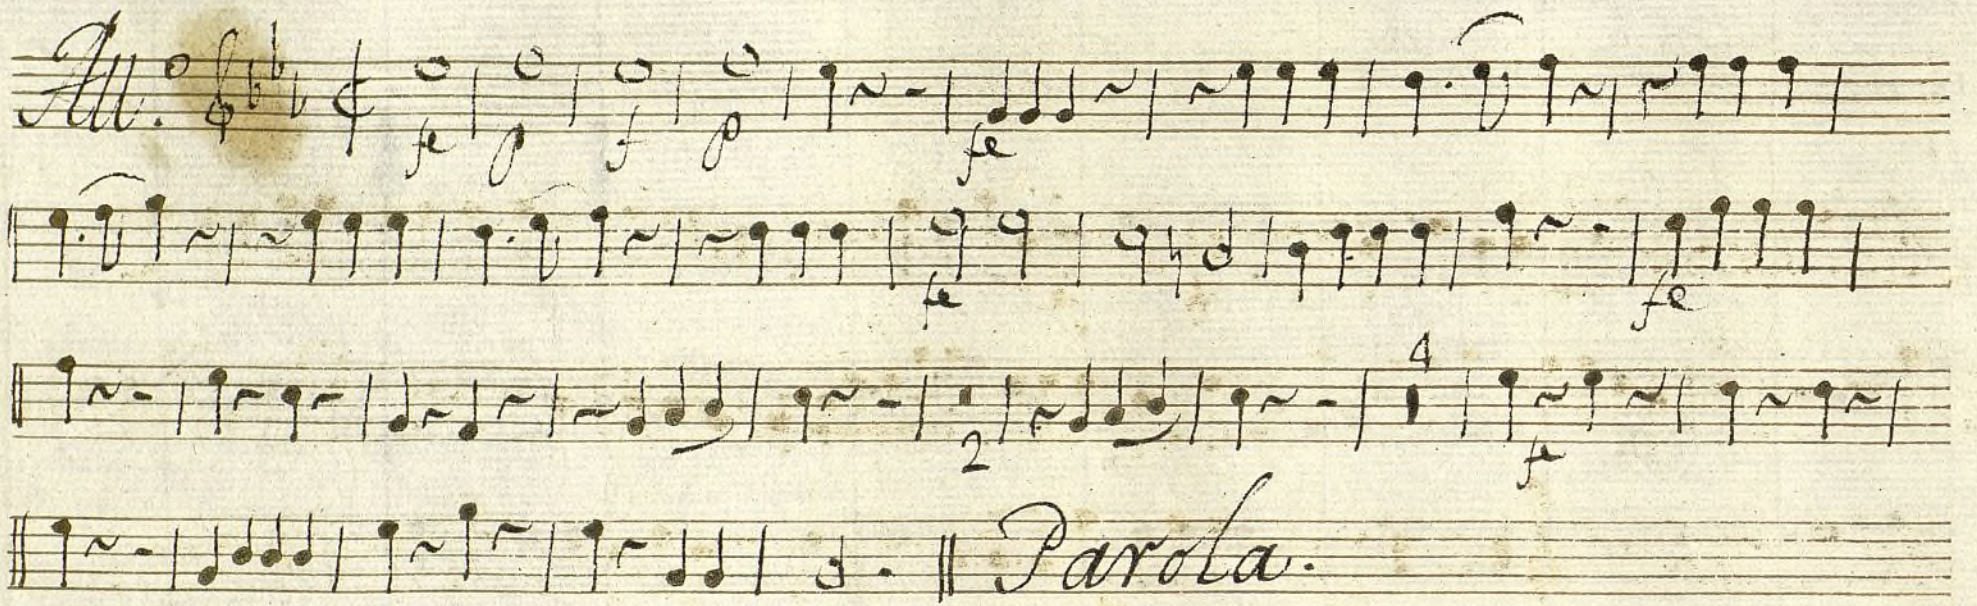 All.o
fe p f p fe
fe fe
4
2 fe
Parola.